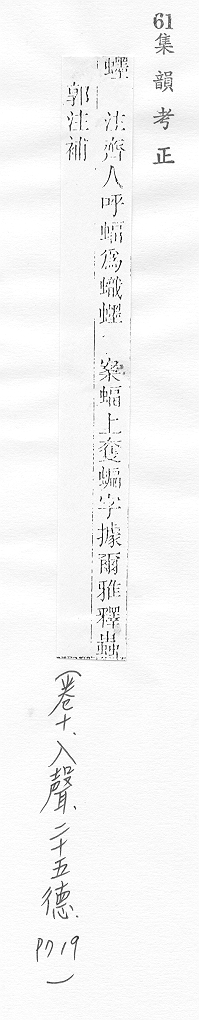 61集韻考正
䘃 注齊人呼蝠爲蟙䘃 案蝠上奪蝙字據爾雅釋蟲
郭注補
(卷十、入聲、二十五德、P719)